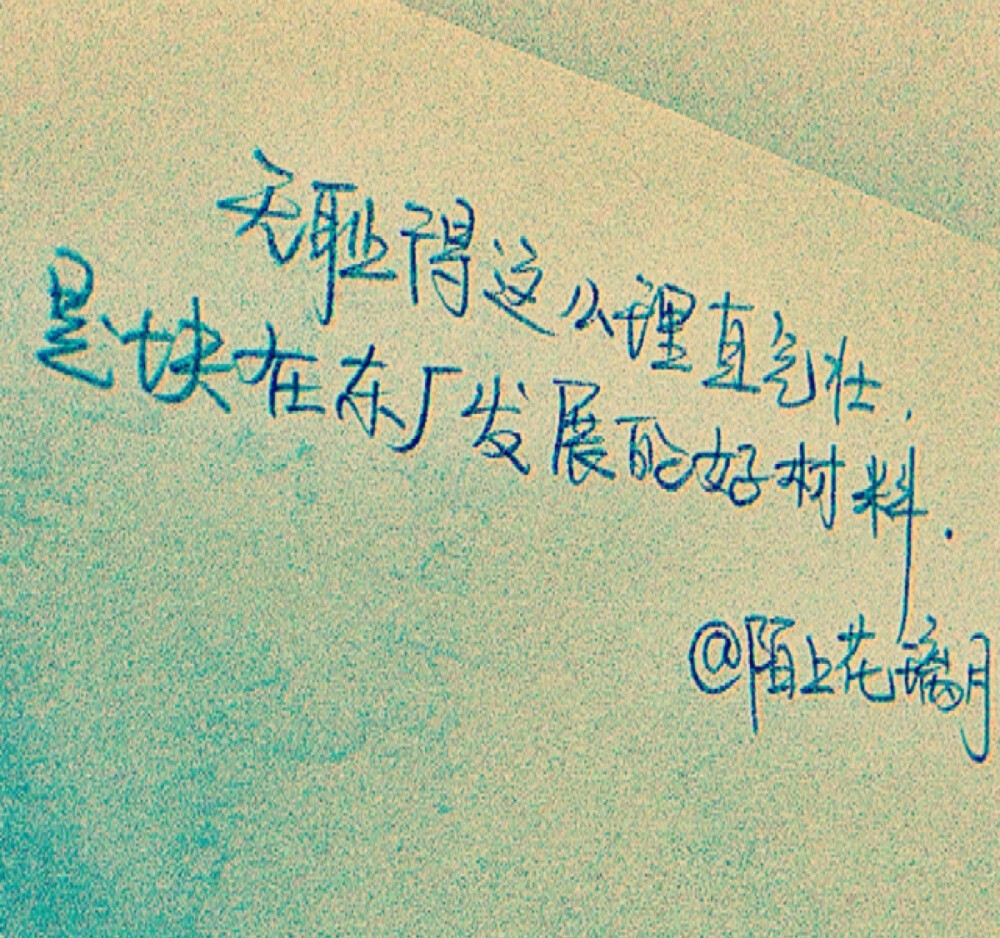 无耻得这么理直气壮,
是块在东厂发展的好材料.
@陌上花璃月